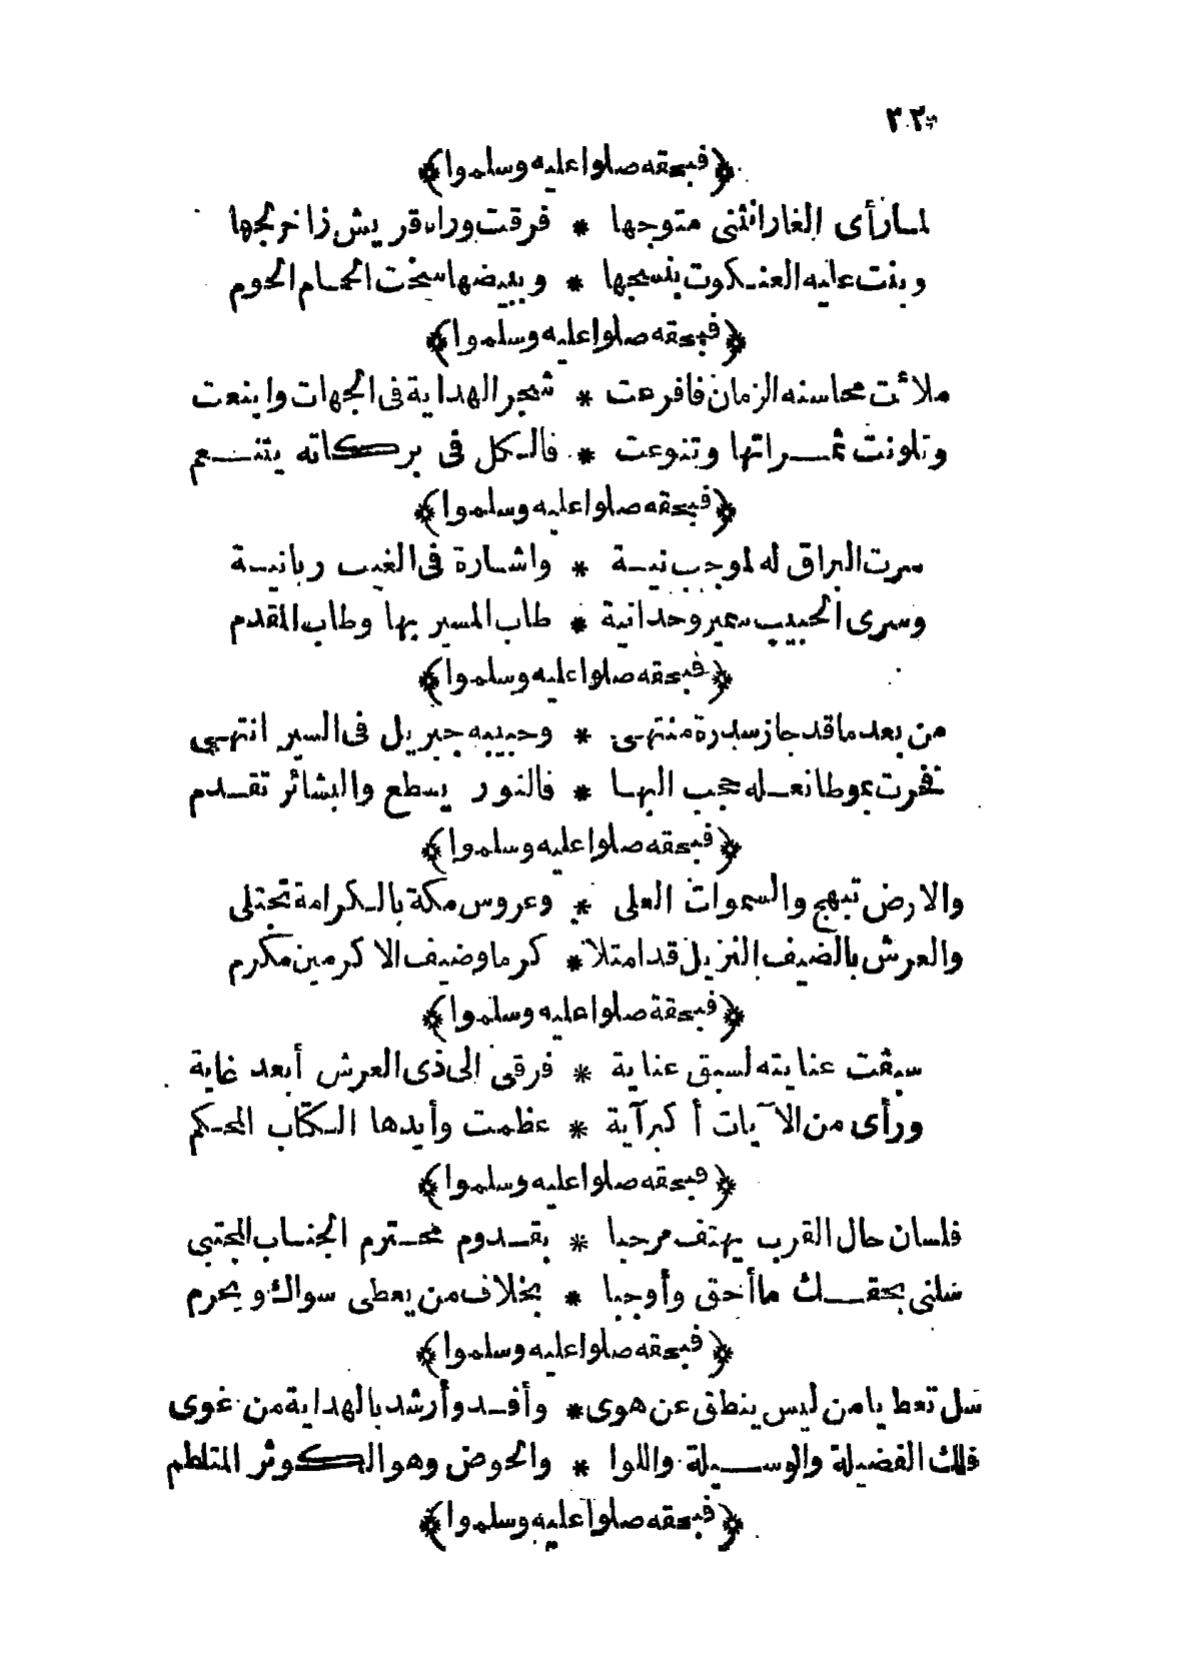 ٣٢
﴿فبحقه صلوا عليه وسلموا﴾
لما رأى الغار انثنى متوجها * فرقت وراه قريش زاخر لجها
وبنت عليه العنكبوت بنسجها * وببيضها سخت الحمام الحوم
﴿فبحقه صلوا عليه وسلموا﴾
ملأت محاسنه الزمان فافرعت * شجر الهداية فى الجهات واينعت
وتلونت ثمراتها وتنوعت * فالكل فى بركاته يتنعم
﴿فبحقه صلوا عليه وسلموا﴾
سرت البراق له لموجب نيسة * واشارة فى الغيب ربانية
وسرى الحبيب سمير وحدانية * طاب المسير بها وطاب المقدم
﴿فبحقه صلوا عليه وسلموا﴾
من بعد ما قد جاز سدرة منتهى * وحبيبه جبريل فى السير انتهى
نفرت بوطا نعله حجب البها * فالنور يسطع والبشائر تقدم
﴿فبحقه صلوا عليه وسلموا﴾
والارض تبهج والسموات العلى * وعروس مكة بالكرامة تجتلى
والعرش بالضيف النزيل قد امتلا * كرما وضيف الاكرمين مكرم
﴿فبحقة صلوا عليه وسلموا﴾
سبقت عنايته لسبق عناية * فرقى الى ذى العرش أبعد غاية
ورأى من الآيات أكبر آية * عظمت وأيدها الكتاب المحكم
﴿فبحقه صلوا عليه وسلموا﴾
فلسان حال القرب يهتف مرحبا * بقدوم محترم الجناب المجتبى
سلنى بحقك ما أحق وأوجبا * بخلاف من يعطى سواك ويحرم
﴿فبحقه صلوا عليه وسلموا﴾
سل تعط يا من ليس ينطق عن هوى * وأفد وأرشد بالهداية من غوى
فلك الفضيلة والوسيلة واللوا * والحوض وهو الكوثر المتلطم
﴿فبحقه صلوا عليه وسلموا﴾